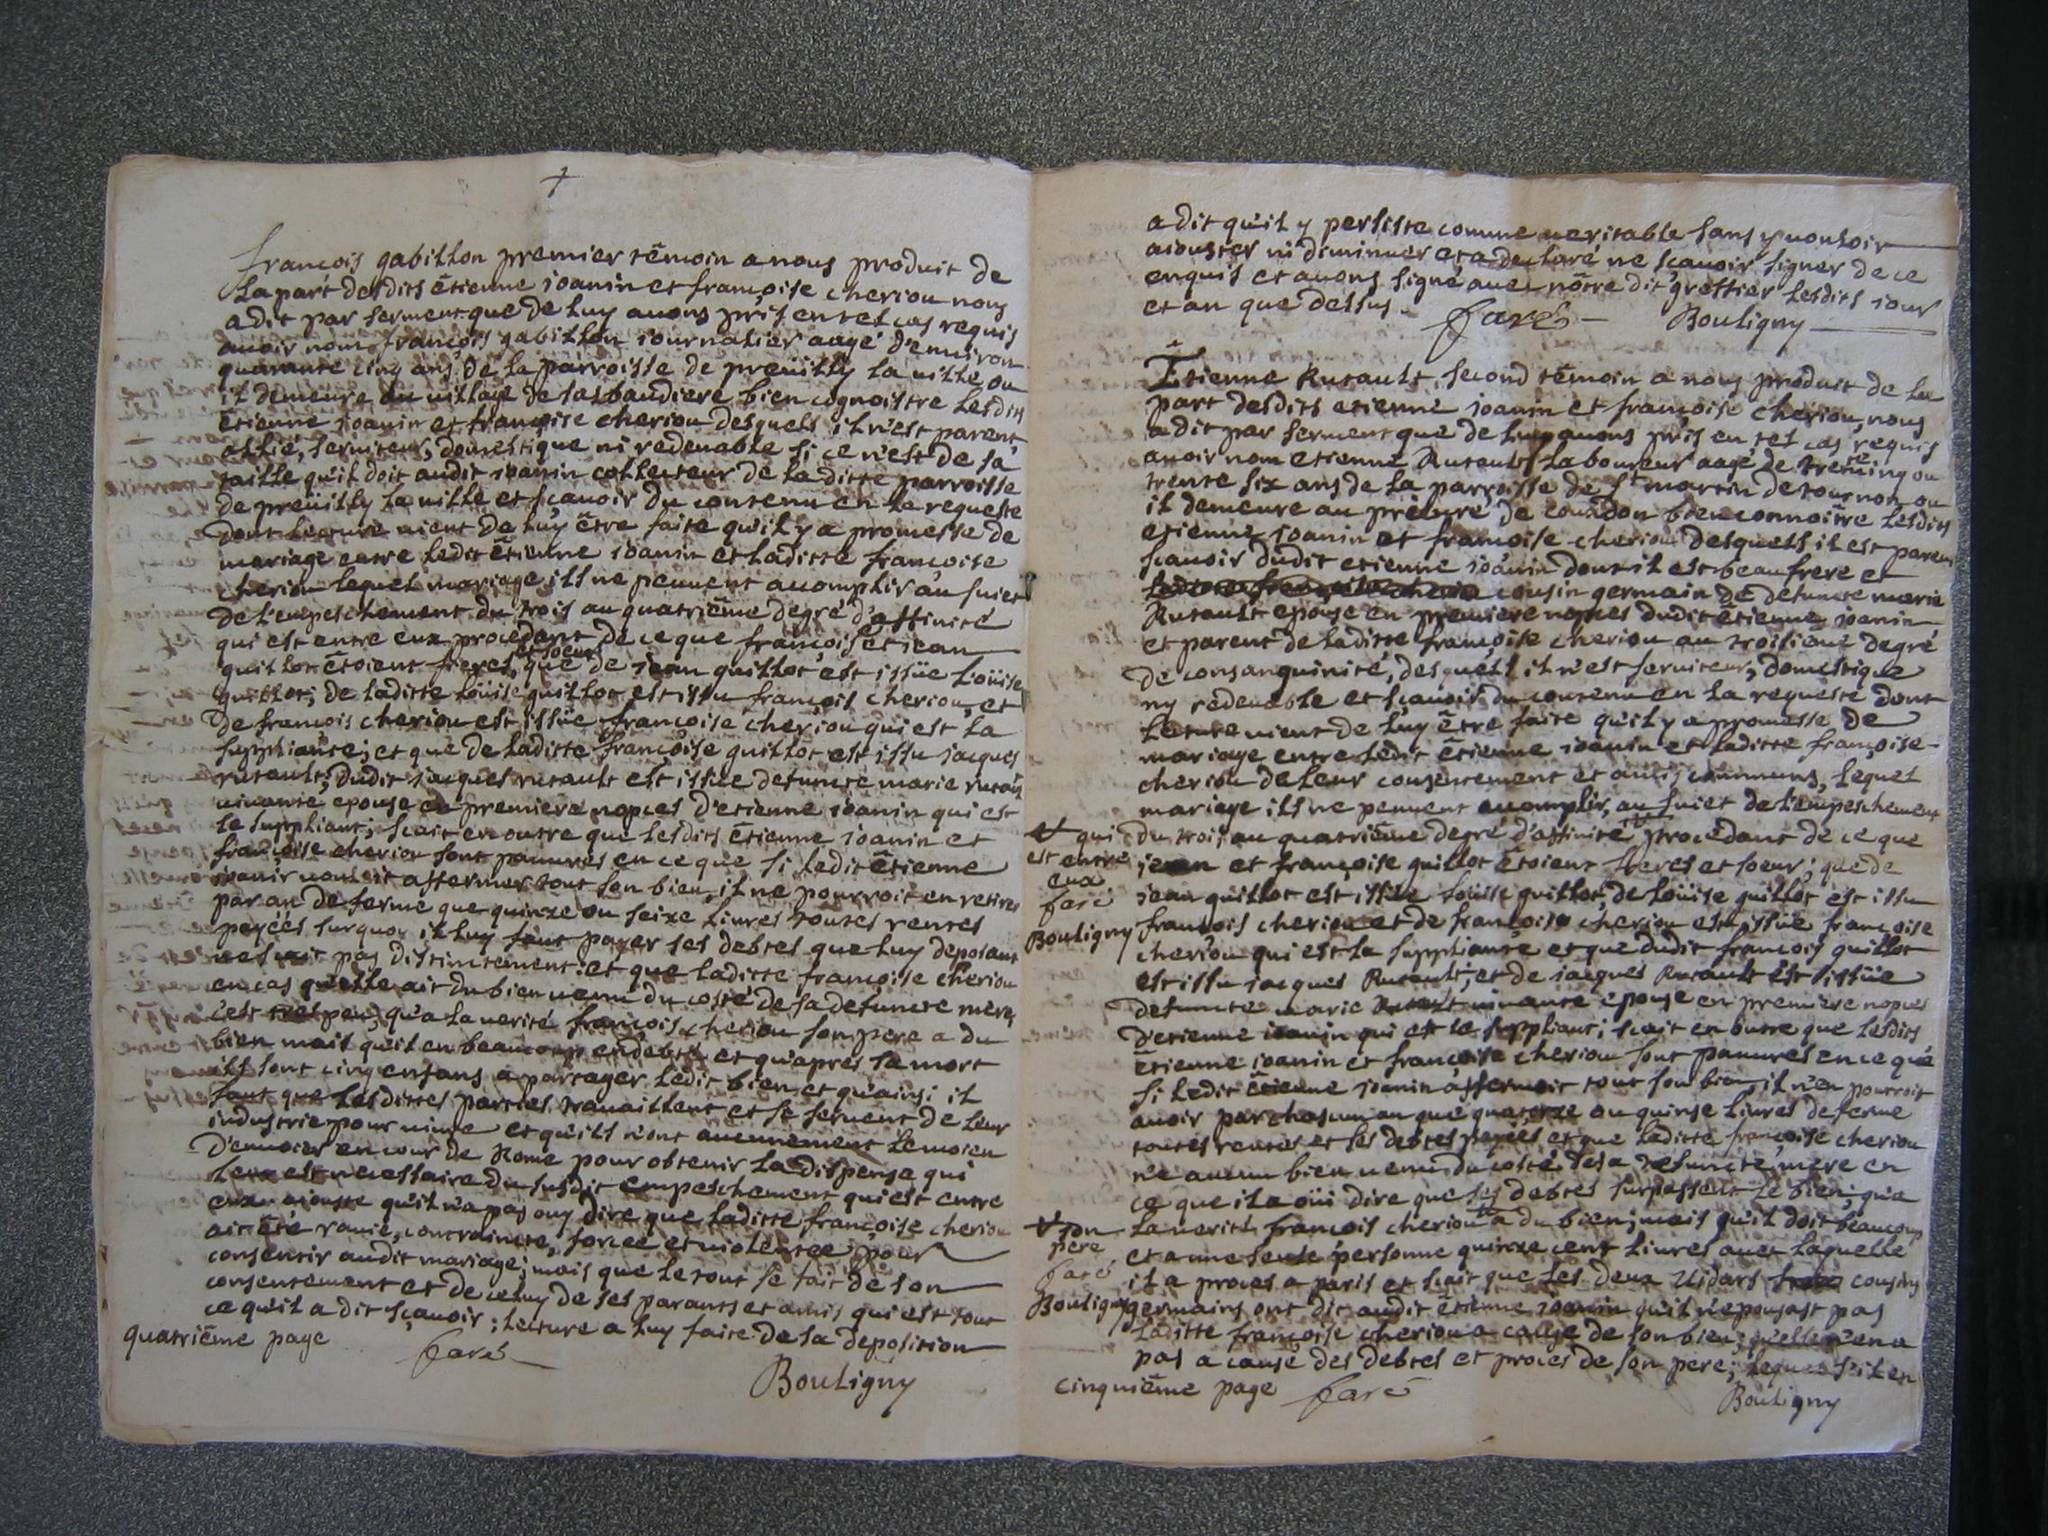 françois gabillon premier témoin a nous produit de
la part desdits étienne ioanin et françoise cheriou nous
a dit par serment que de luy avons pris en tel cas requis
avoir nom françois gabillon iournalier aagé d'environ
quarante cinq ans de la parroisse de preüilly la ville ou
il demeure au village de bien cognoistre lesdits
étienne ioanin et françoise cheriou desquels il n'est parent
allié, serviteur, domestique ni redevable si ce n'est de sa
taille qu'il doit audit ioanin collecteur de la ditte parroisse
de preüilly la ville et sçavoir du contenu en la requeste
dont lecture vient de luy être faite qu'il y a promesse de
mariage entre ledit étienne ioanin et laditte françoise
cheriou lequel mariage ils ne peuvent acomplir au suiet
de l'empeschement du trois au quatriême degré d'affinité
qui est entre eux procedant de ce que françoise et iean
quillot étoient freres et soeur que de iean quillot est issüe loüise
quillot; de laditte loüise quillot est issu françois cheriou, et
de françois cheriou est issüe françoise cheriou qui est la
suppliante; et que de laditte françoise quillot est issu jacques
rutault; dudit jacques rutault est issüe defuncte marie rutault
vivante epouse en premiere nopces d'etienne ioanin qui est
le suppliant; sçait en outre que lesdits étienne ioanin et
françoise cheriou sont pauvres en ce que si ledit étienne
ioanin vouloit affermer tout son bien, il ne pourroit en retirer
par an de ferme que quinze ou seize livres toutes rentes
payéés surquoy il luy faut payer ses debtes que luy deposant
ne sçait pas distinctement: et que laditte françoise cheriou
en cas qu'elle ait du bien venu du costé de sa defuncte mere,
c'est tres peu, qu'a la verité françois cheriou son pere a du
bien mais qu'il en beaucoup endebté et qu'aprés sa mort
ils sont cinq enfans a partager ledit bien et qu'ainsi il
faut que lesdittes parties travaillent et se servent de leur
industrie pour vivre et qu'ils n'ont aucunement le moien
d'envoier en cour de Rome pour obtenir la dispense qui
leur est necessaire du susdit empeschement qui est entre
eux aiouste qu'il n'a pas ouy dire que laditte françoise cheriou
ait été ravie, contrainte, forcée et violentée pour
consentir audit mariage; mais que le tout se fait de son
consentement et de celuy de ses parants et amis qui est tout
ce qu'il a dit sçavoir; lecture a luy faite de sa deposition
quatriême page faré
Bouligny
a dit qu'il y persiste comme veritable sans y vouloir
aiouster ni diminuer et a declaré ne sçavoir signer de ce
enquis et avons signé avec nôtre dit greffier lesdits iour
et an que dessus. faré Bouligny
Etienne Rutault second témoin a nous produit de la
part desdits etienne ioanin et françoise cheriou, nous
a dit par serment que de luy avons pris en tel cas requis
avoir nom etienne Rutault laboureur aagé de trente cinq ou
trente six ans de la parroisse de St martin de tournon ou
il demeure au prieuré de bien connoître lesdits
etienne ioanin et françoise cheriou desquels il est parent
sçavoir dudit etienne ioanin dont il est beau frere et
cousin germain de defuncte marie
Rutault epouse en premiere nopces dudit étienne ioanin
et parent de laditte françoise cheriou au troisieme degré
de consanguinité, desquels il n'est serviteur, domestique
ny redevable et sçavoir du contenu en la requeste dont
lecture vient de luy être faite qu'il y a promesse de
mariage entre ledit étienne ioanin et laditte françoise
cheriou de leur consentement et amis communs, lequel
mariage ils ne peuvent acomplir, au suiet de l'empeschement
du trois au quatriême degré d'affinité procedant de ce que
qui
est entre
eux
faré
Bouligny
iean et françoise quillot étoient freres et soeur; que de
iean quillot est issüe loüise quillot, de loüise quillot est issu
françois cheriou et de françois cheriou est issüe françoise
cheriou qui est la suppliante et que dudit françois quillot
est issu jacques Rutault, et de jacques Rutault est issüe
defuncte marie Rutault vivante epouse en premiere nopces
d'etienne ioanin qui est le suppliant; sçait en outre que lesdits
étienne ioanin et françoise cheriou sont pauvres en ce que
si ledit étienne ioanin affermoit tout son bien, il n'en pourroit
avoir par chascun an que quatorze ou quinse livres de ferme
toutes rentes et ses debtes payéés, et que laditte françoise cheriou
n'a aucun bien venu du costé de sa defuncte mere en
ce que il a oüi dire que les debtes surpassent le bien; qu'a
la verité françois cheriou a du bien; mais qu'il doit beaucoup
son
pere
faré
Bouligny
et a une seule personne quinze cent livres avec laquelle
il a proces a paris et sçait que les deux cousins
germains ont dit audit étienne ioanin qu'il n'epousast pas
laditte françoise cheriou a cause de son bien; qu'elle n'en a
pas a cause des debtes et proces de son pere; lequel s'il en
cinquiême page faré
Bouligny